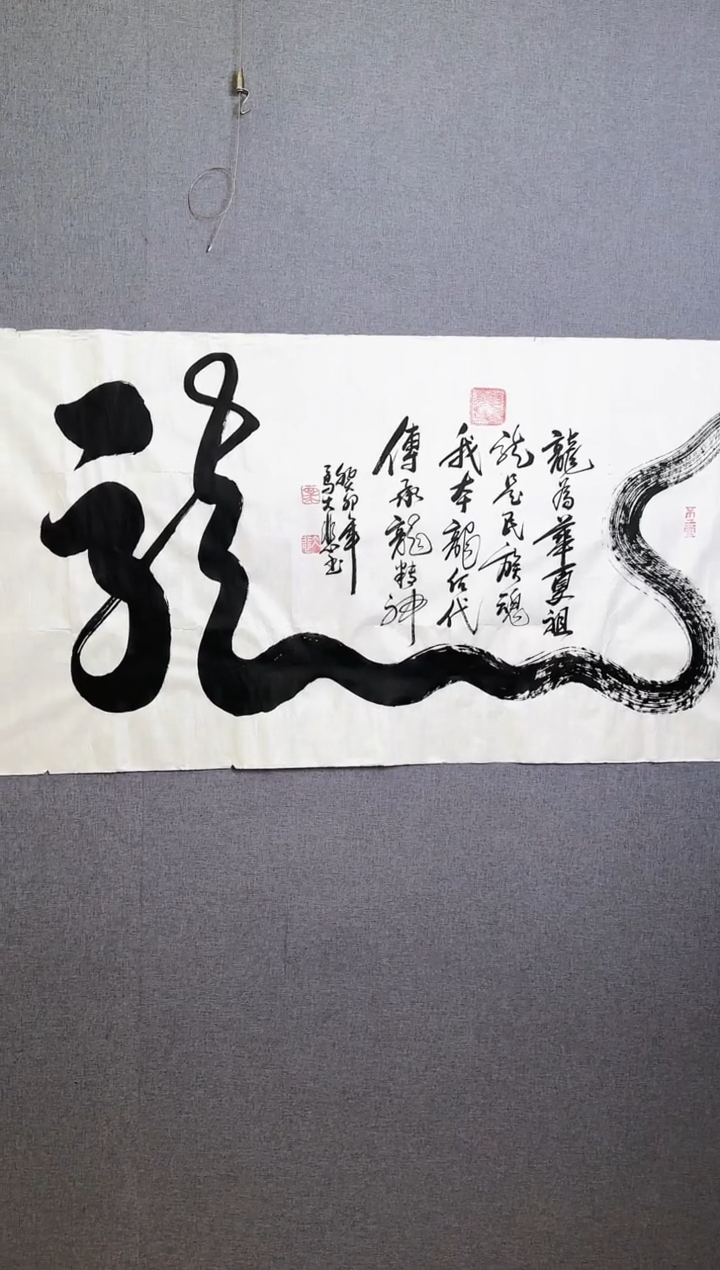 龍
龍為華夏祖
龍是民族魂
我本龍后代
傳承龍精神
癸卯年
馬大書